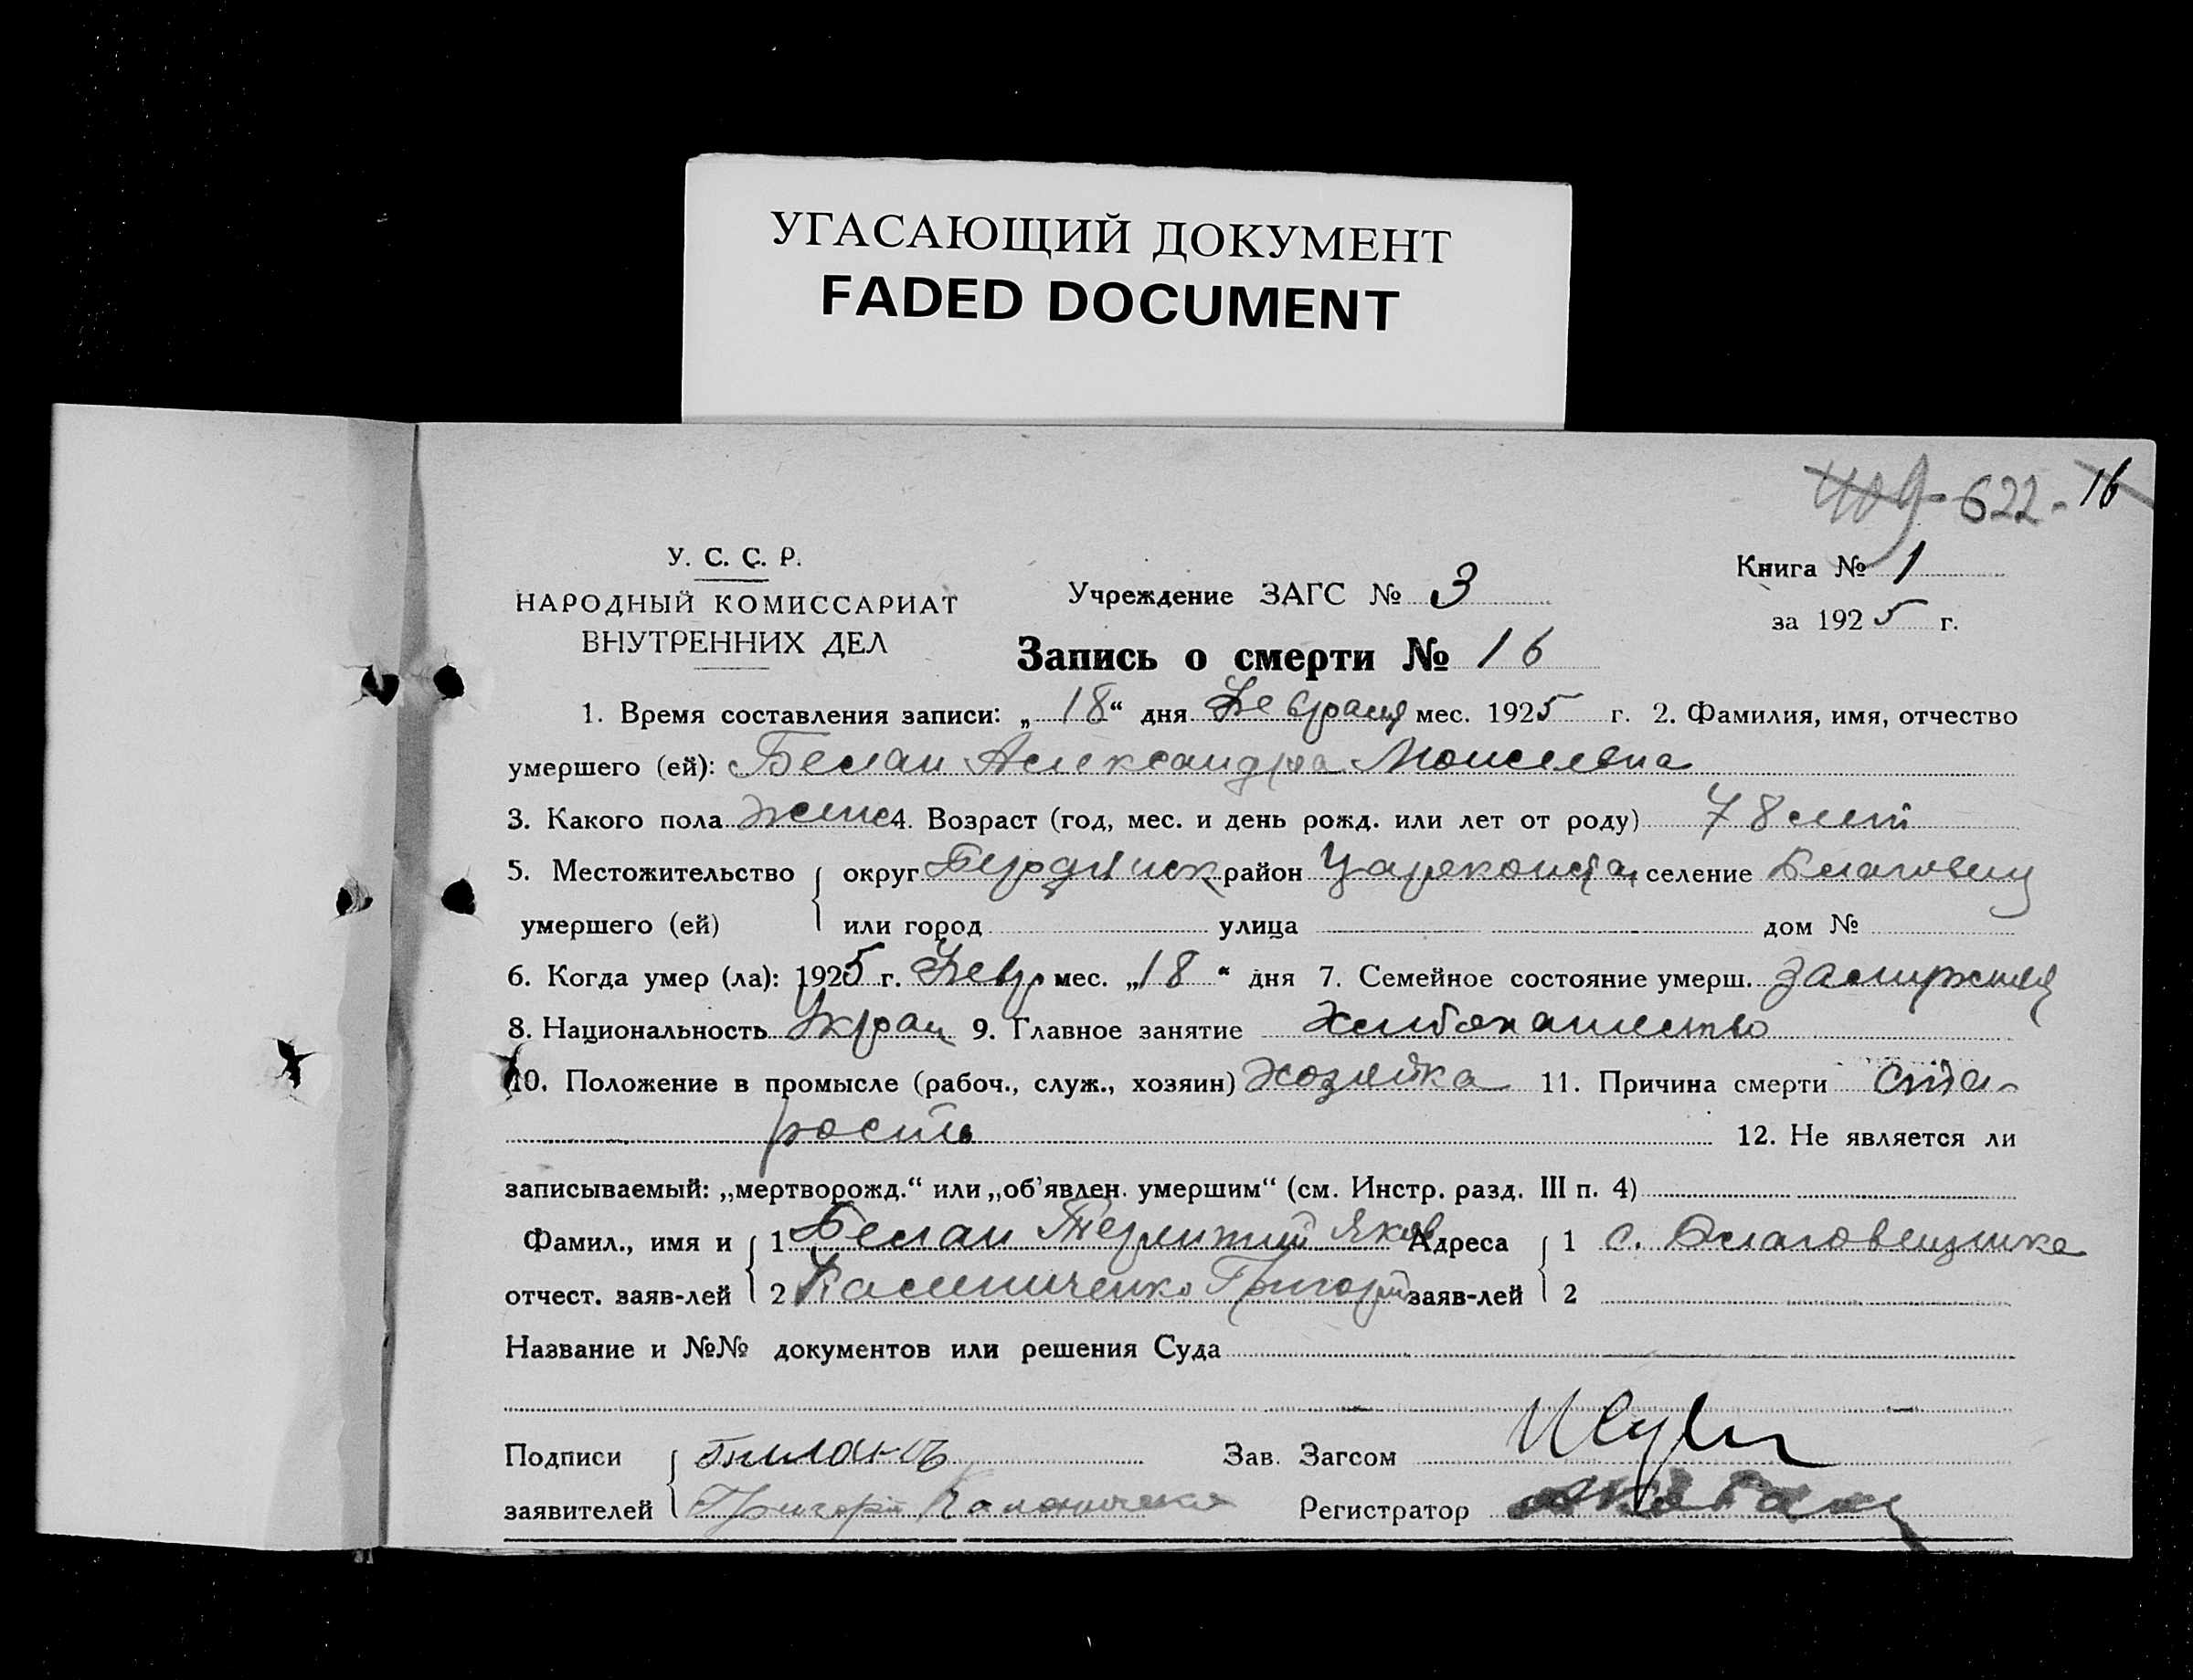 УГАСАЮЩИЙ ДОКУМЕНТ
FADED DOCUMENT
409-622-16
У. С. С. Р.
НАРОДНЫЙ КОМИССАРИАТ
ВНУТРЕННИХ ДЕЛ
Учреждение ЗАГС № 3
Книга № 1
за 1925 г.
Запись о смерти № 16
1. Время составления записи: „18“ дня Февраля мес. 1925 г. 2. Фамилия, имя, отчество
умершего (ей): Белан Александра Моисеевна
3. Какого пола женс 4. Возраст (год, мес. и день рожд. или лет от роду) 78 лет
5. Местожительство округ Бердянск район Цареконст селение Благовещ
умершего (ей) или город улица дом №
6. Когда умер (ла): 1925 г. Февр мес. „18“ дня 7. Семейное состояние умерш. замужняя
8. Национальность Украи 9. Главное занятие Хлебопашество
10. Положение в промысле (рабоч., служ., хозяин) хозяйка 11. Причина смерти ста-
рость 12. Не является ли
записываемый: „мертворожд.“ или „об'явлен. умершим“ (см. Инстр. разд. III п. 4)
Фамил., имя и 1 Белан Яков Адреса 1 с. Благовещенка
отчест. заяв-лей 2 Калениченко Григорий заяв-лей 2
Название и №№ документов или решения Суда
Подписи Зав. Загсом
заявителей Григорий Регистратор